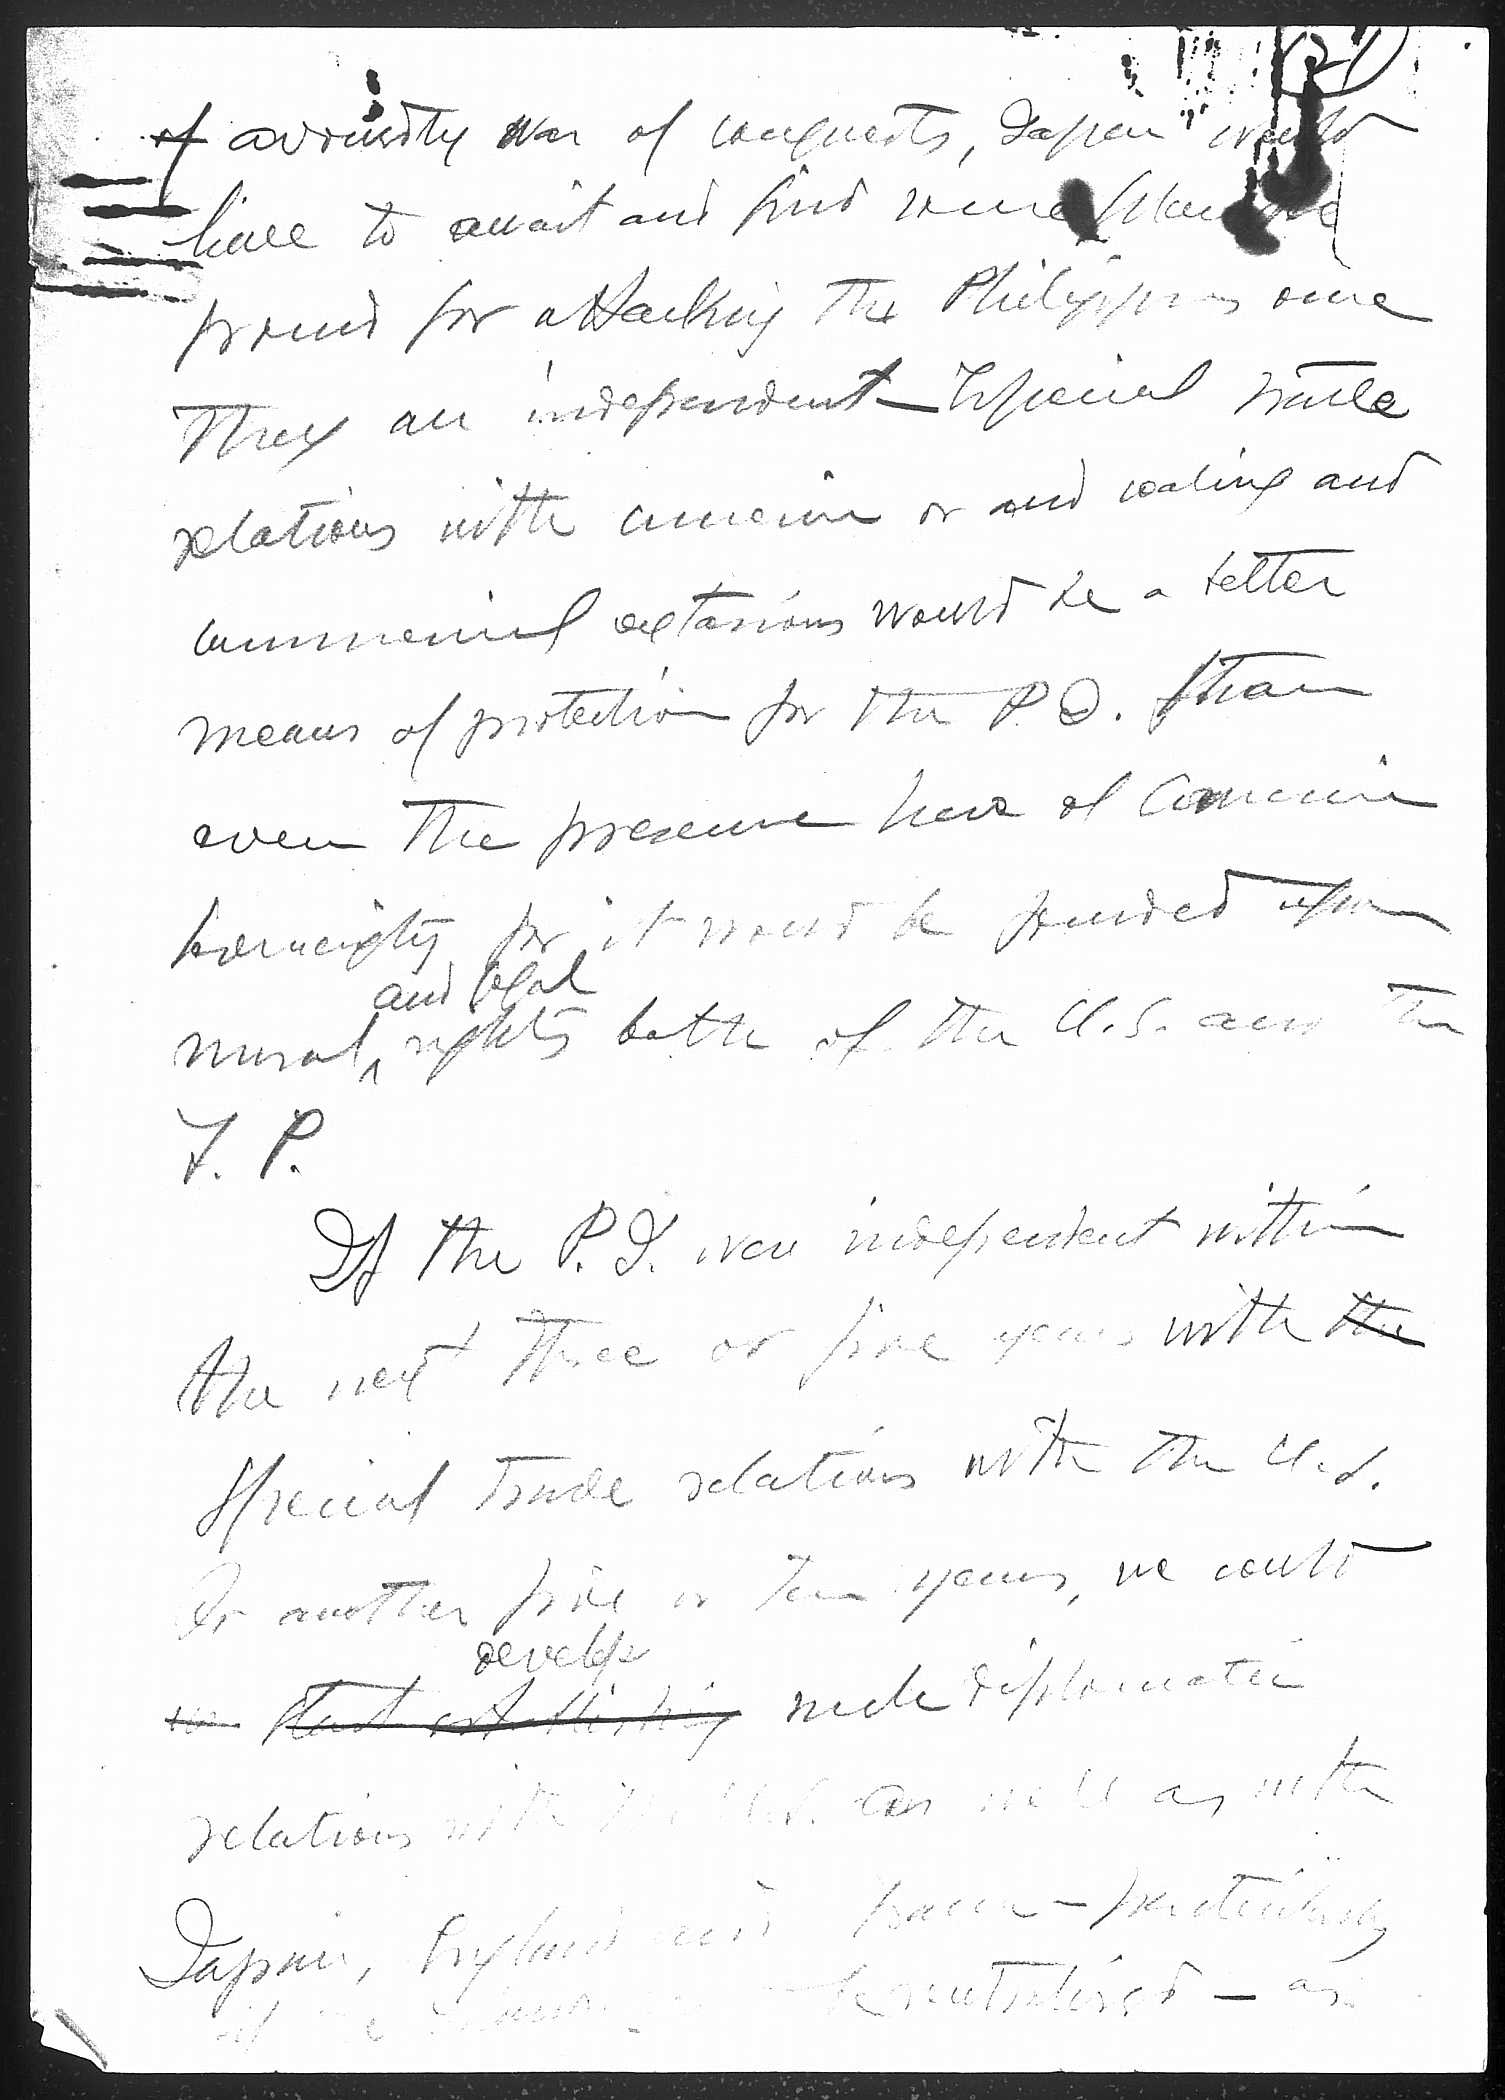 (21)
of avowedly war of conquests, Japan would
have to await and find some plausible
ground for attacking the Philippines once
they are independent – Special trade
relations with America or and coaling and
commercial stations would be a better
means of protection for the P.I. than
even the presence here of American
sovereignty for it would be founded upon
and legal
moral rights both of the U.S. and the
F. P.
If the P.I. were independent within
the next three or five years with the
special trade relations with the U.S.
for another five or ten years, we could
develop
we start establishing such diplomatic
relations with the U.S. as well as with
Japan, England and France – particularly
if the neutralized – as